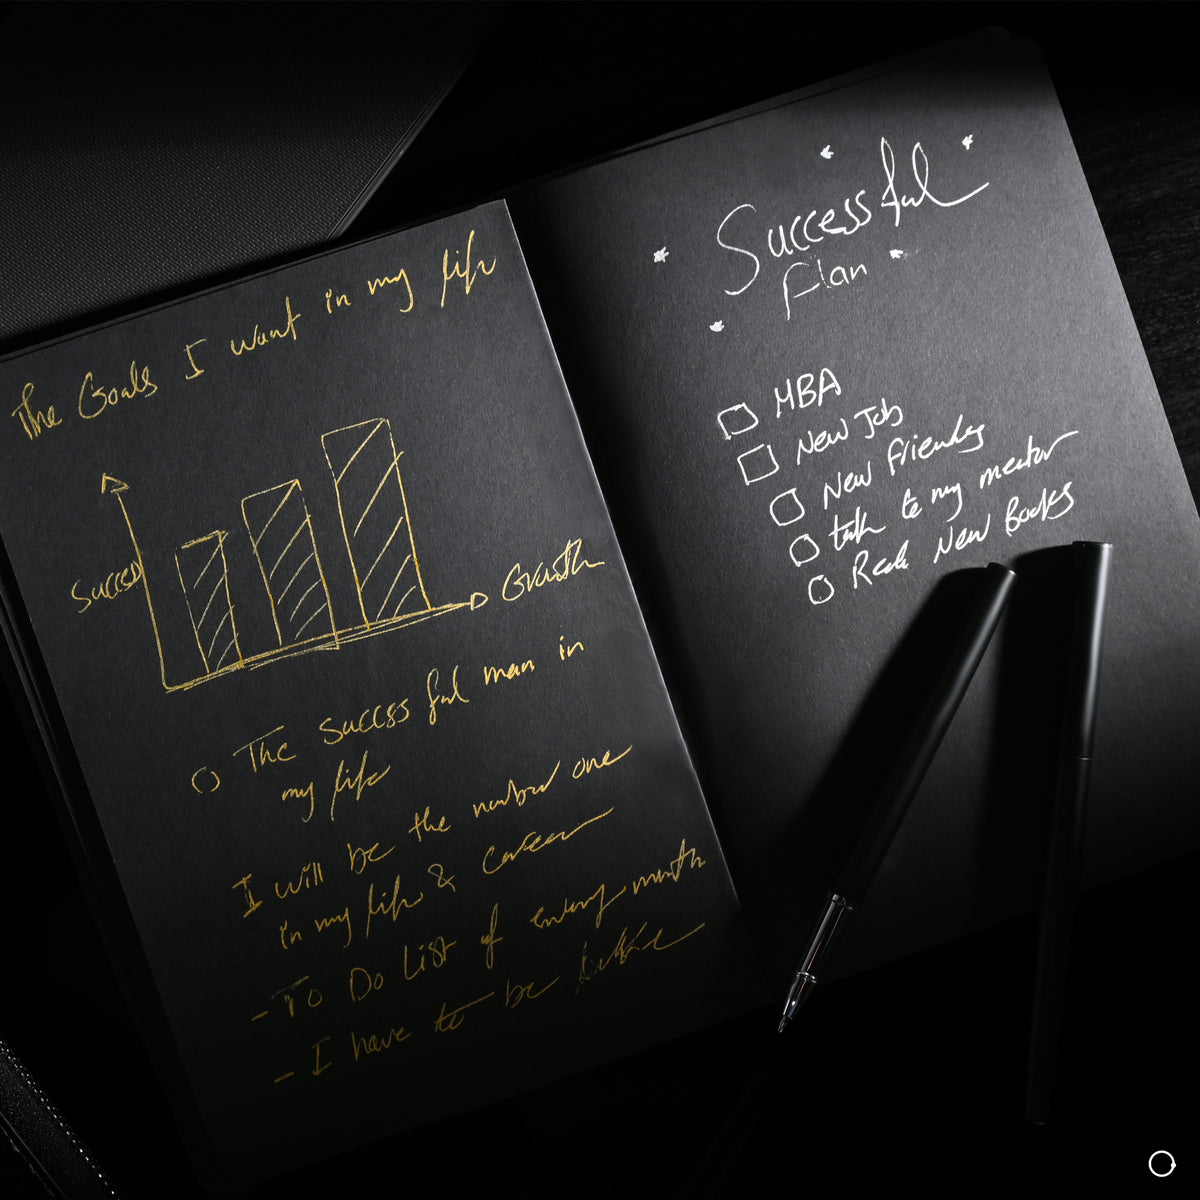 The Goals I want in my life
Success
Growth
The Success ful man in
my life
I will be the number one
in my life & Career
- To Do List of every month
- I have to be
Successful
Plan
MBA
New Job
New Friends
talk to my mentor
Read New Books